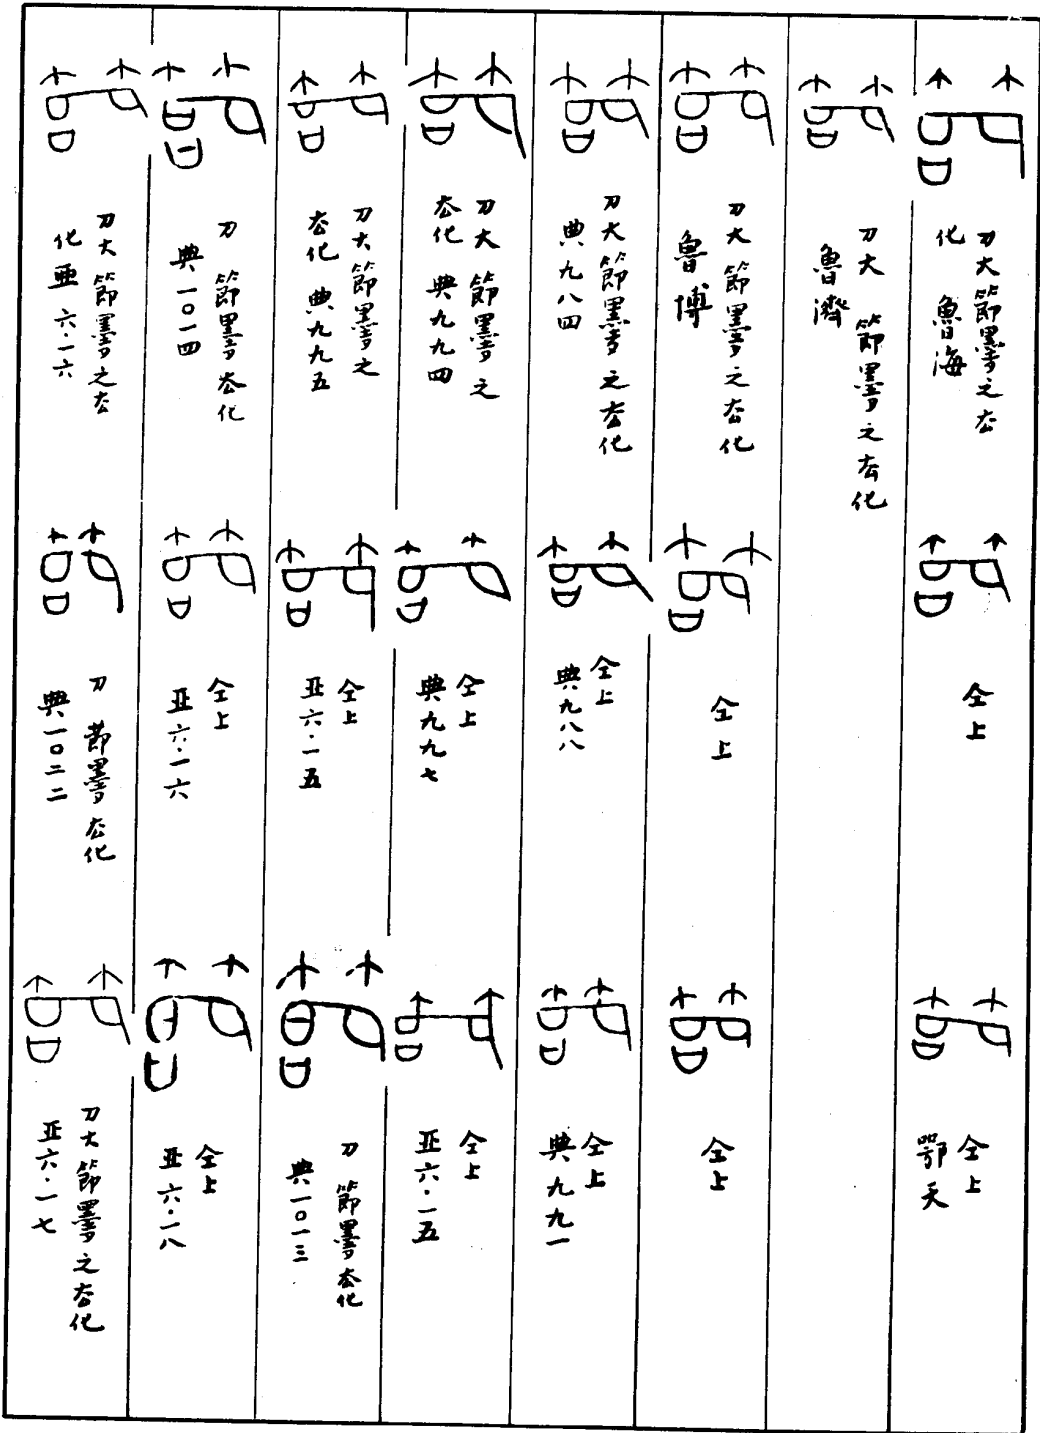 刀大節墨之厺
化 魯海
仝上
仝上
鄂天
刀大 節墨之厺化
魯濟
刀大 節墨之厺化
魯博
仝上
仝上
刀大節墨之厺化
典九八四
仝上
典九八八
仝上
典九九一
刀大 節墨之
厺化 典九九四
仝上
典九九七
仝上
亞六·一五
刀大節墨之
厺化 典九九五
仝上
亞六·一五
刀 節墨厺化
典一〇一三
刀 節墨厺化
典一〇一四
仝上
亞六·一六
仝上
亞六·一八
刀大 節墨之厺
化 亞六·一六
刀 節墨厺化
典一〇二二
刀大節墨之厺化
亞六·一七